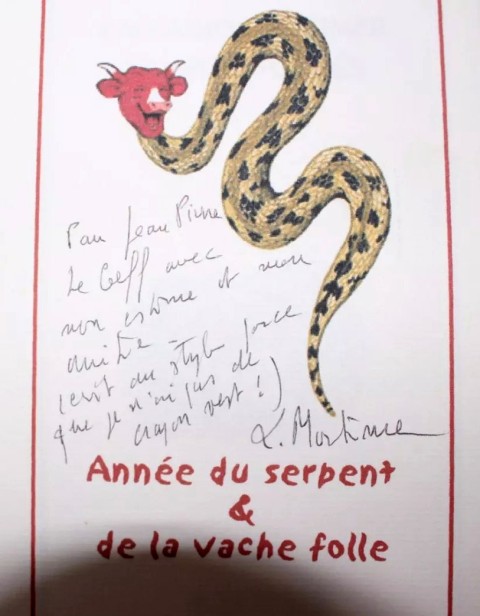 Pour Jean Pierre
Le Goff avec
mon estime et mon
amitié -
(écrit au stylo parce
que je n'ai pas de
crayon vert !)
Année du serpent
&
de la vache folle